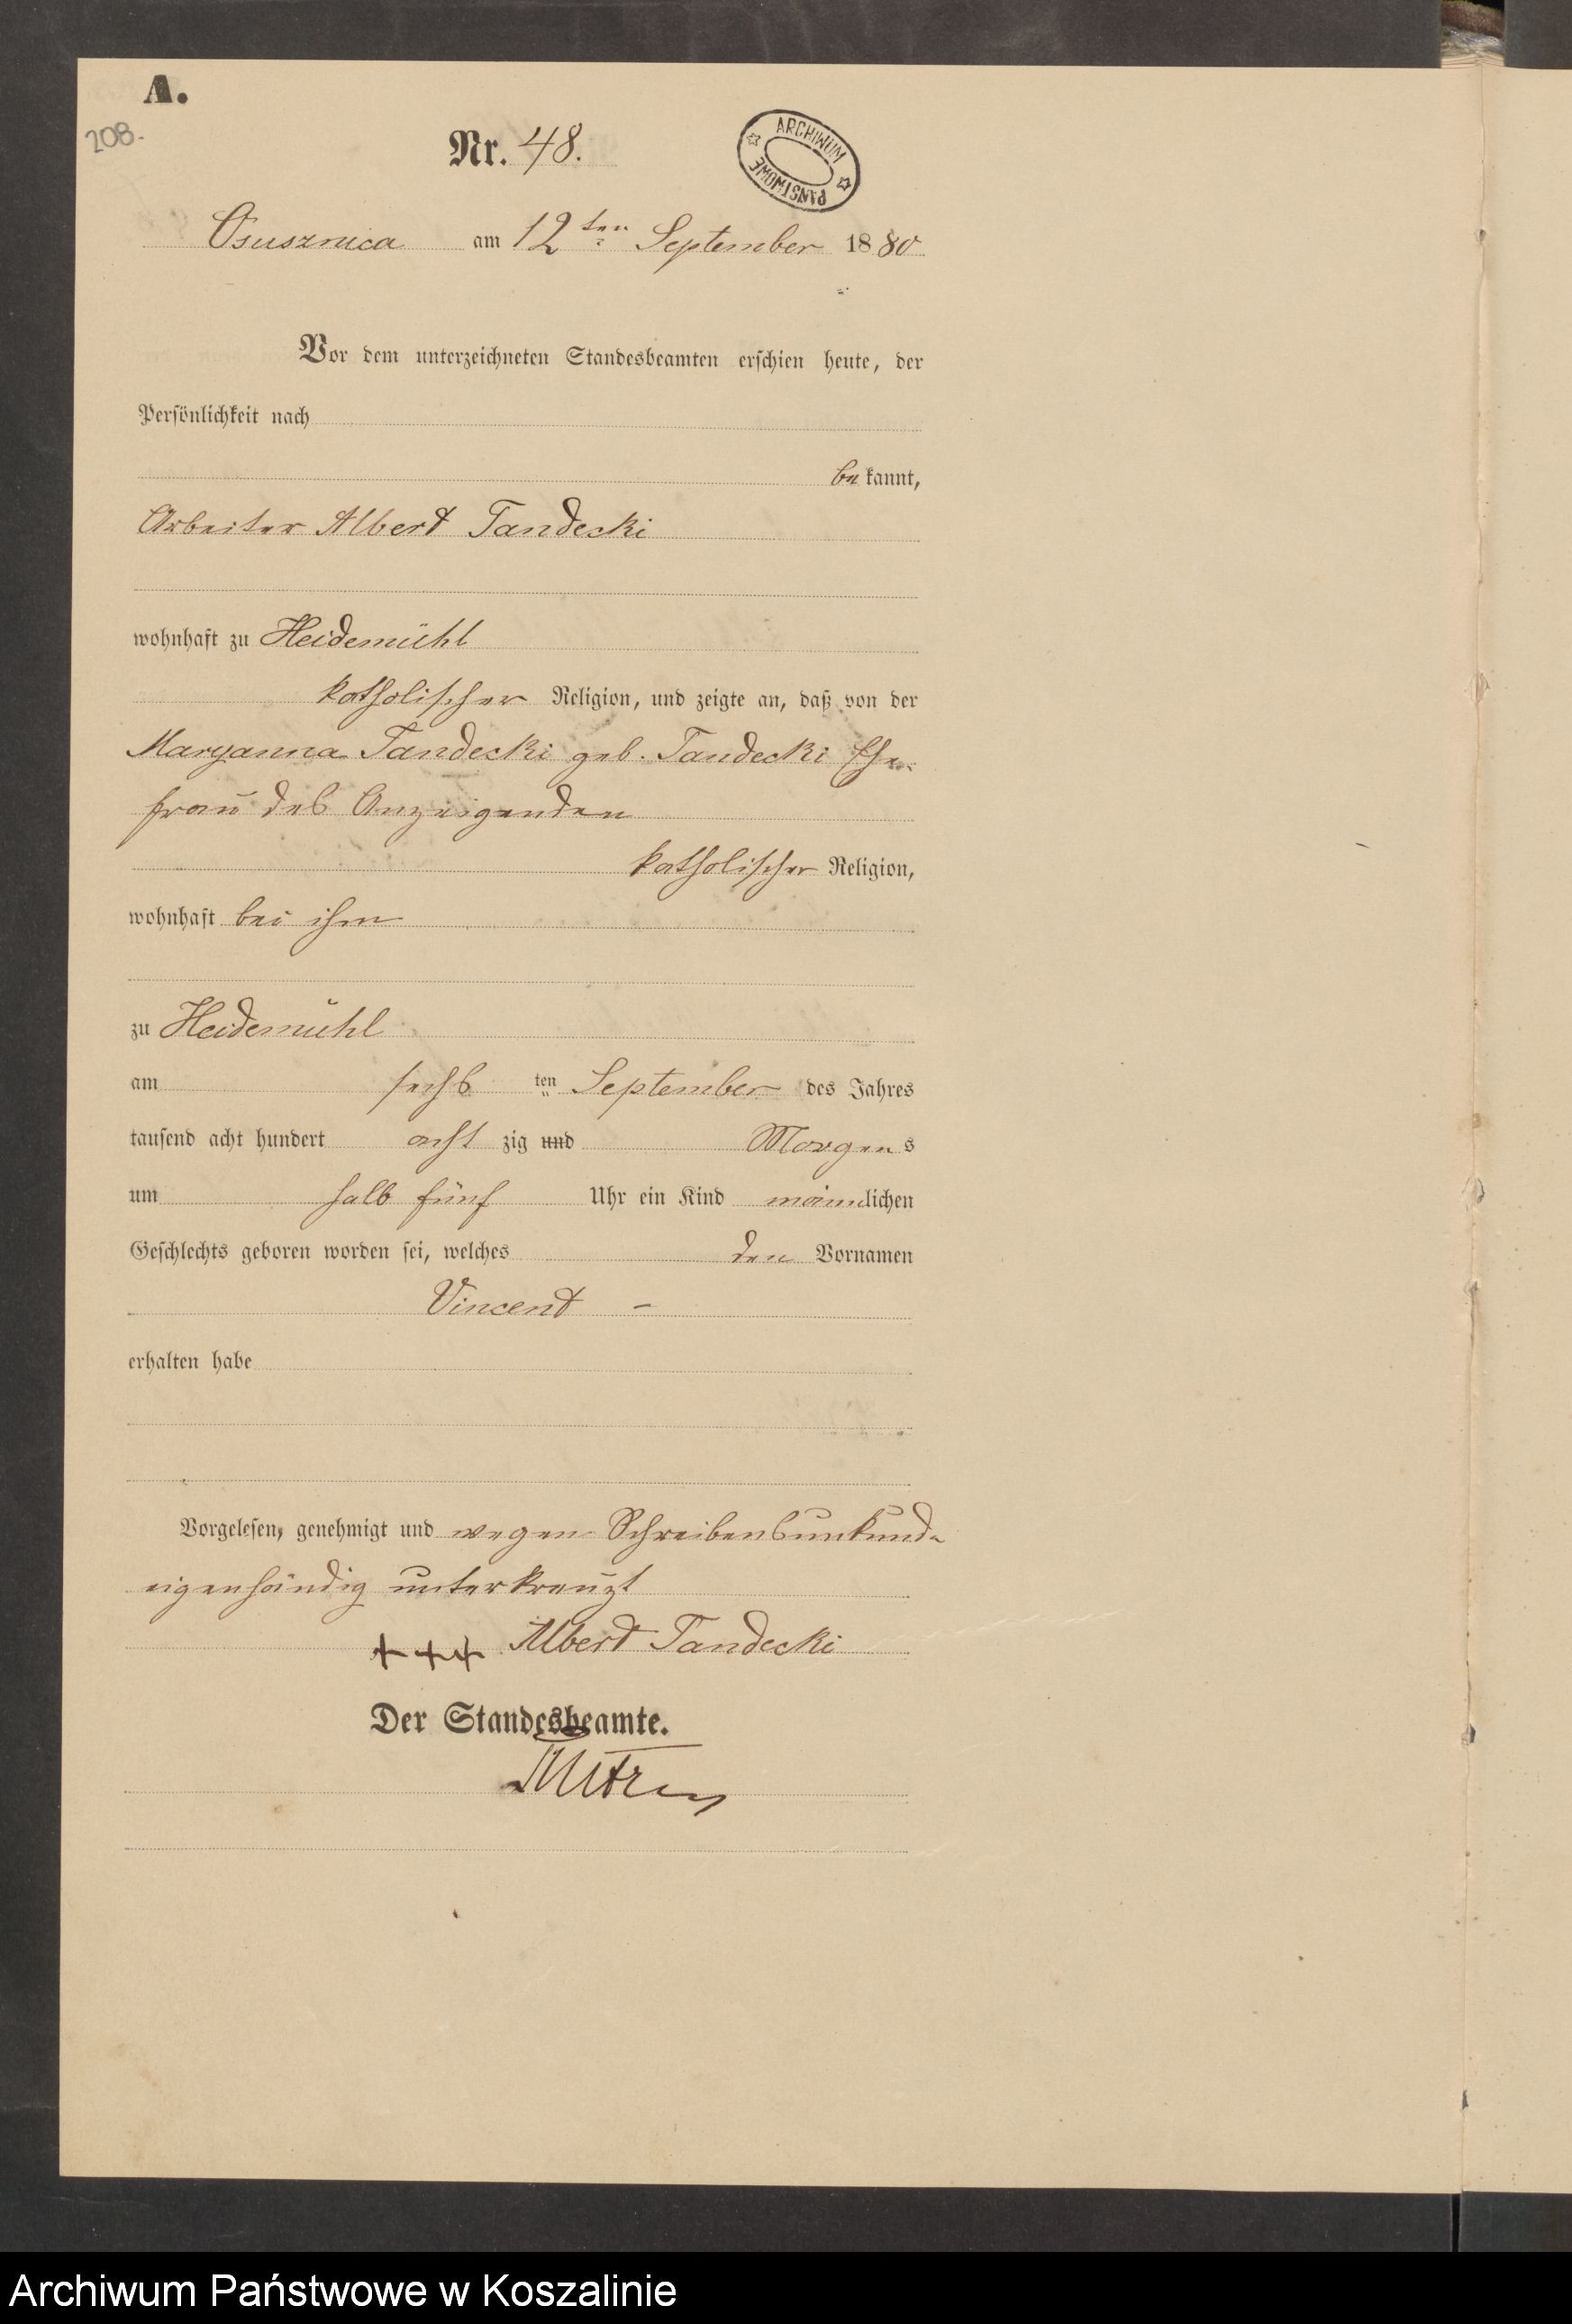 A.
208.
Nr. 48.
ARCHIWUM
PAŃSTWOWE
Osusznica am 12ten September 1880
Vor dem unterzeichneten Standesbeamten erschien heute, der
Persönlichkeit nach
bekannt,
Arbeiter Albert Tandecki
wohnhaft zu Heidemühl
katholischer Religion, und zeigte an, daß von der
Maryanna Tandecki geb. Tandecki Ehe-
frau des Anzeigenden
katholischer Religion,
wohnhaft bei ihm
zu Heidemühl
am sechsten September des Jahres
tausend acht hundert acht zig und Morgens
um halb fünf Uhr ein Kind männlichen
Geschlechts geboren worden sei, welches den Vornamen
Vincent -
erhalten habe
Vorgelesen, genehmigt und wegen Schreibensunkunde
eigenhändig unterkreuzt
+++ Albert Tandecki
Der Standesbeamte.
Archiwum Państwowe w Koszalinie